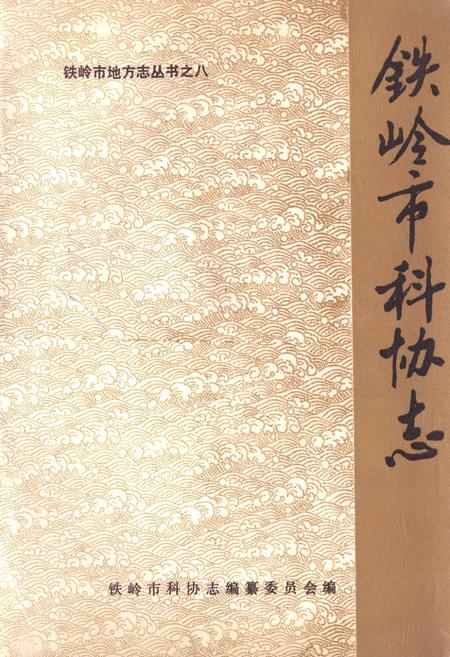 铁岭市地方志丛书之八
鉄岭市科协志
铁岭市科协志编纂委员会编